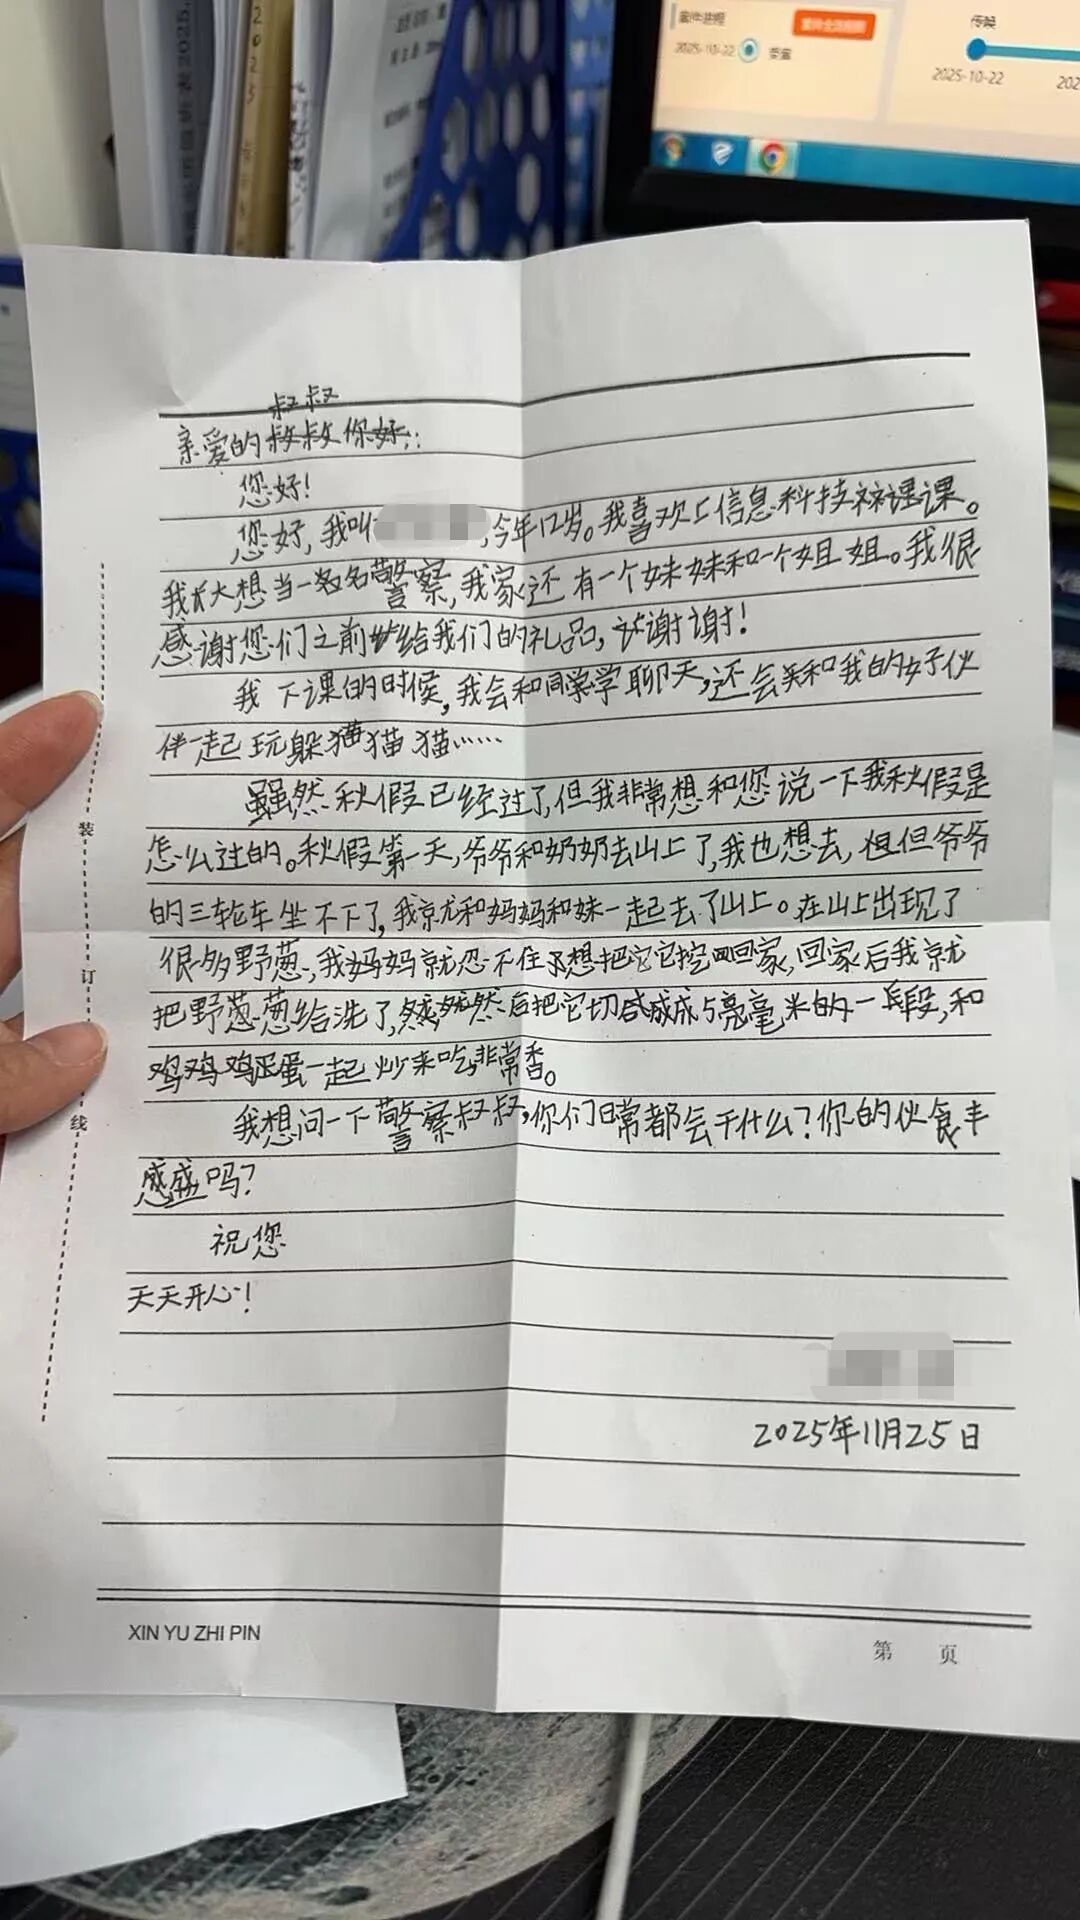 2025.
2025
案件进程
2025-10-22
受案
传唤
2025-10-22
202
叔叔
亲爱的叔叔你好:
您好!
您好,我叫,今年12岁。我喜欢上信息科技这课课。
我长大想当一名名警察,我家还有一个妹妹和一个姐姐。我很
感谢您们之前给我们的礼品,谢谢!
我下课的时候,我会和同学学聊天,还会关和我的好伙
伴一起玩躲猫猫猫……
虽然秋假已经过了,但我非常想和您说一下我秋假是
怎么过的。秋假第一天,爷爷和奶奶去山上了,我也想去,但但爷爷
的三轮车坐不下了,我就和妈妈和妹一起去了山上。在山上出现了
很多野葱,我妈妈就忍不住想把它它挖回回家,回家后我就
把野葱葱给洗了,然然后把它切成成5毫毫米的一段段,和
鸡鸡鸡蛋蛋一起炒来吃,非常香。
我想问一下警察叔叔,你们日常都会干什么?你的伙食丰
盛吗?
祝您
天天开心!
2025年11月25日
装
订
线
XIN YU ZHI PIN
第 页